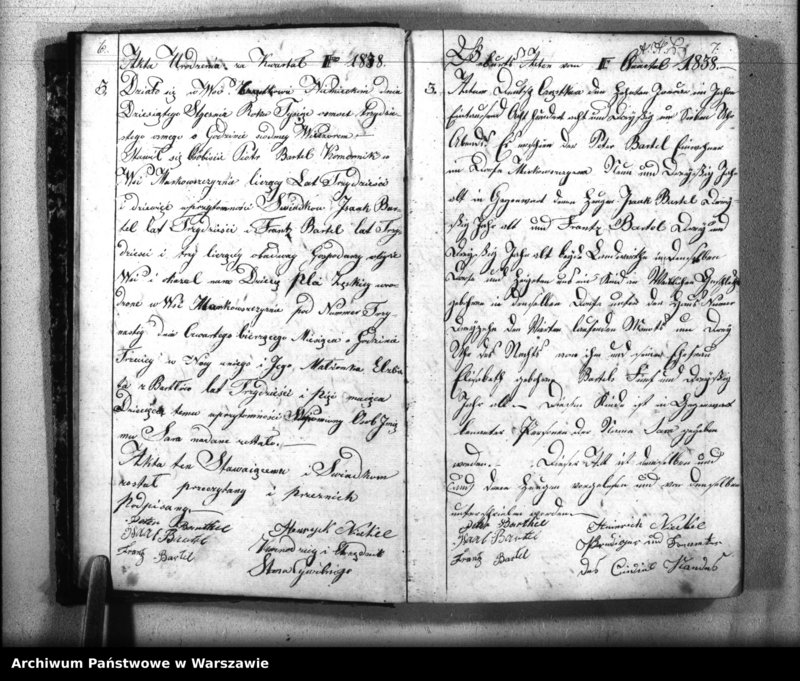 6.
Akta Urodzenia za Kwartał I 1838.
3.
Działo się w Wsi Niemieckim dnia
Dziesiątego Stycznia Roku Tysiąc osmset trzydzie-
stego osmego o Godzinie siodmej Wieczorem
Stawił się Osobiście Piotr Bartel Komornik w
Wsi Markowszczyzna liczący Lat Trzydzieści
i dziewięć w przytomności Świadkow Isaak Bar-
tel lat Trzydzieści i Frantz Bartel lat Trzy-
dzieści i trzy liczący obadwaj Gospodarzy w tejże
Wsi i okazał nam Dziecię płci Żęńskiey uro-
dzone w Wsi Markowszczyzna pod Numer Trzy-
nasty dnia Czwartego bieżącego Miesiąca o Godzinie
Trzeciej w Nocy z niego i Jego Małżonka Elżbie-
ta z Bartlow lat Trzydzieści i pięć mająca
Dziecięciu temu w przytomności Osob Jmię
Sara nadane zostało.
Akta ten Stawaiącemu i Świadkom
został przeczytany i przez nich
Podpisany
Peter Barthel
Isaak Bartel
Frantz Bartel
Henryk Nickel
i Urzędnik
Stanu Cywilnego
7.
Geburts Akten vom I Quartal 1838.
3.
Actum Deutsch den Zehnten Januar im Jahre
Eintausend Acht hundert acht und dreyßig um Sieben Uhr
Abends. Es erschien der Peter Bartel Einwohner
im Dorfe Markowszczyzna Neun und dreyßig Jahr
alt in Gegenwart der Zeugen Isaak Bartel Drey-
ßig Jahr alt und Frantz Bartel Drey und
Dreyßig Jahr alt beyde Landwirthe in demselben
Dorfe und Zeigten uns ein Kind Weiblichen Geschlechts
gebohren in demselben Dorfe unter der Haus Numer
Dreyzehn den Vierten laufenden Monats um Drey
Uhr des Nachts von ihm und seiner Ehefrau
Elisabeth gebohrne Bartel Fünf und Dreyßig
Jahr alt. Diesem Kinde ist in Gegenwart
benannter Personen der Name Sara gegeben
worden. Dieser Akt ist demselben und
denen Zeugen vorgelesen und von denselben
unterschrieben worden
Peter Barthel
Isaak Bartel
Frantz Bartel
Heinrich Nickel
Prediger und Beamter
des Civiel Standes
Archiwum Państwowe w Warszawie